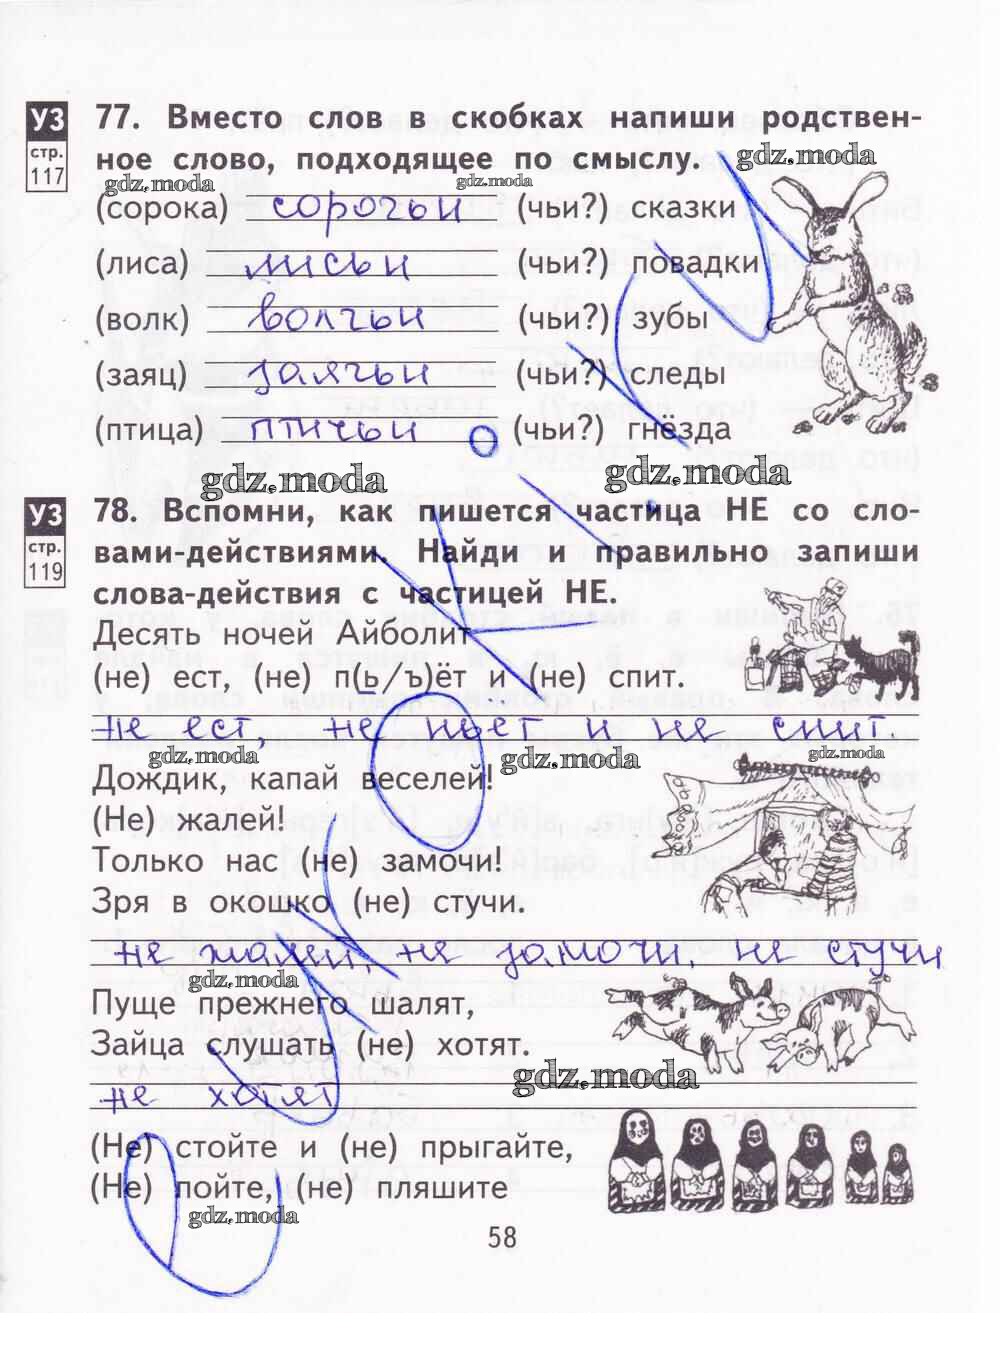 УЗ
стр.
117
77. Вместо слов в скобках напиши родствен-
ное слово, подходящее по смыслу.
gdz.moda
gdz.moda
gdz.moda
(сорока) сорочьи (чьи?) сказки
(лиса) лисьи (чьи?) повадки
(волк) волчьи (чьи?) зубы
(заяц) заячьи (чьи?) следы
(птица) птичьи (чьи?) гнёзда
gdz.moda
gdz.moda
УЗ
стр.
119
78. Вспомни, как пишется частица НЕ со сло-
вами-действиями. Найди и правильно запиши
слова-действия с частицей НЕ.
Десять ночей Айболит
(не) ест, (не) п(ь/ъ)ёт и (не) спит.
не ест, не пьёт и не спит
gdz.moda
gdz.moda
gdz.moda
Дождик, капай веселей!
(Не) жалей!
Только нас (не) замочи!
Зря в окошко (не) стучи.
не жалей, не замочи, не стучи
gdz.moda
Пуще прежнего шалят,
Зайца слушать (не) хотят.
gdz.moda
не хотят
(Не) стойте и (не) прыгайте,
(Не) пойте, (не) пляшите
gdz.moda
58